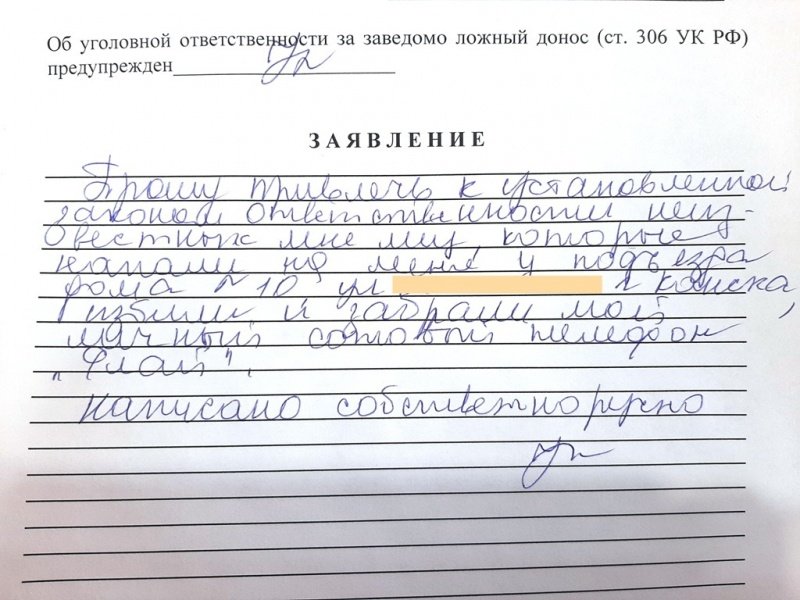 Об уголовной ответственности за заведомо ложный донос (ст. 306 УК РФ)
предупрежден
ЗАЯВЛЕНИЕ
Прошу привлечь к установленной
законом ответственности неиз-
вестных мне лиц, которые
напали на меня у подъезда
дома № 10 ул г Канска,
избили и забрали мой
личный сотовый телефон
„Флай".
написано собственноручно